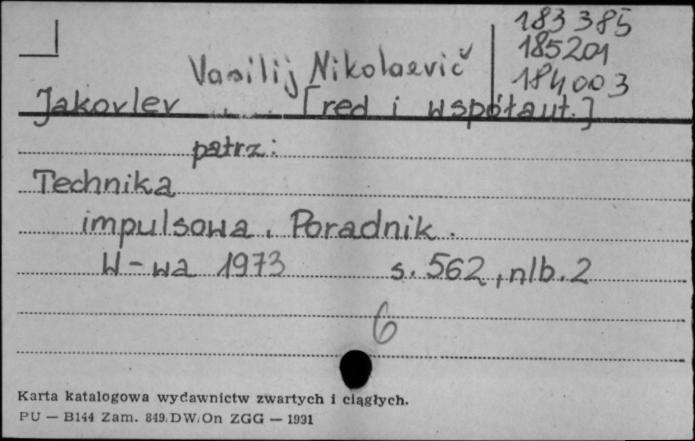 183 385
185201
184003
Vasilij Nikolaevič
Jakovlev [red i współaut.]
patrz:
Technika
impulsowa. Poradnik.
W-wa 1973 s. 562, nlb. 2
6
Karta katalogowa wydawnictw zwartych i ciągłych.
PU — B144 Zam. 849/DW/On ZGG — 1931